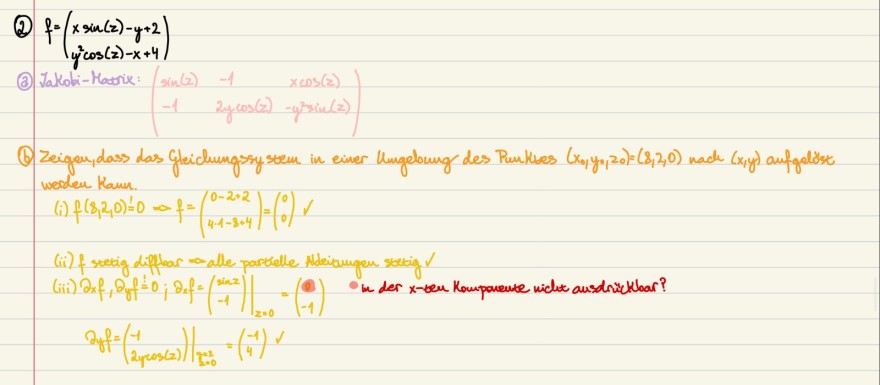 ② f = (x sin(z) - y + 2
y² cos(z) - x + 4)
ⓐ Jakobi-Matrix: (sin(z) -1 x cos(z)
-1 2y cos(z) -y² sin(z))
ⓑ Zeigen, dass das Gleichungssystem in einer Umgebung des Punktes (x₀,y₀,z₀)=(8,2,0) nach (x,y) aufgelöst
werden kann.
(i) f(8,2,0) =! 0 => f = (0-2+2
4·1-8+4) = (0
0) ✓
(ii) f stetig diffbar => alle partielle Ableitungen stetig ✓
(iii) ∂xf, ∂yf ≠! 0 ; ∂xf = (sin z
-1)|z=0 = (0
-1) • in der x-ten Komponente nicht ausdrückbar?
∂yf = (-1
2y cos(z))|y=2
z=0 = (-1
4) ✓